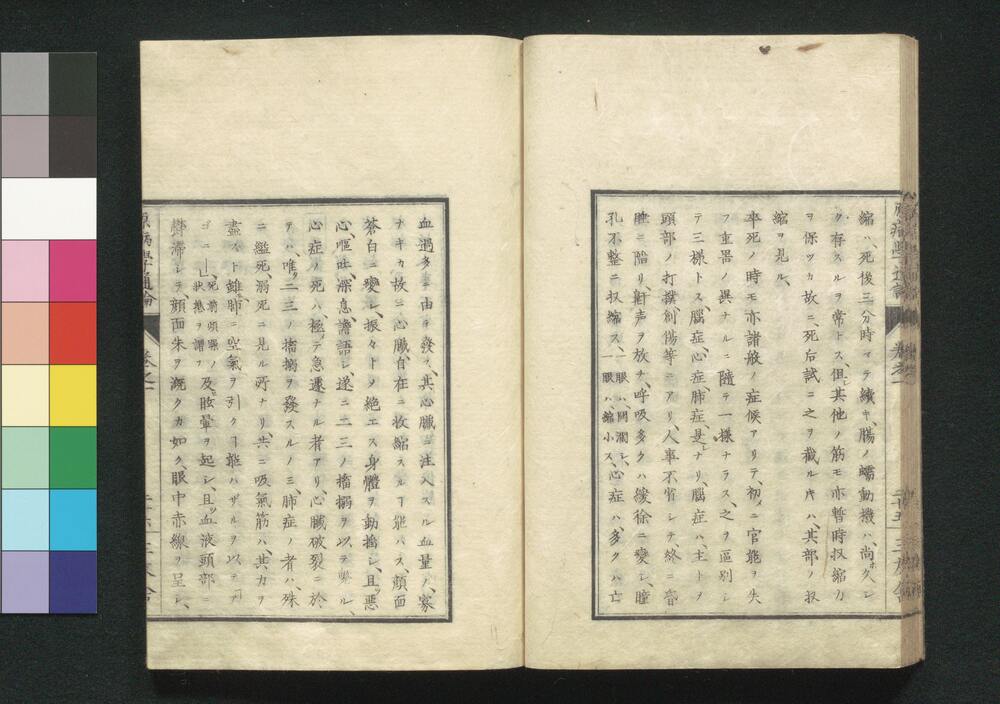 縮ハ、死後三分時マテ續キ、腸ノ蠕動機ハ、尚ホ久シ
ク存スルヲ常トス、但シ其他ノ筋モ亦暫時収縮力
ヲ保ツカ故ニ、死后試ニ之ヲ截ル𪜈ハ、其部ノ収
縮ヲ見ル、
卒死ノ時モ亦諸般ノ症候アリテ、初メニ官能ヲ失
フ重器ノ異ナルニ隨テ一様ナラス、之ヲ區別シ
テ三様トス、腦症心症、肺症是レナリ、腦症ハ、主トメ
頭部ノ打撲創傷等ニアリ、人事不省シテ、終ニ昏
睡ニ陥リ、鼾声ヲ放チ、呼吸多クハ緩徐ニ變シ、瞳
孔不整ニ収縮ス、一眼ハ開濶シ、一眼ハ縮小ス、心症ハ、多クハ亡
血過多ニ由テ發ス、其心臓ニ注入スル血量ノ、寡
ナキカ故ニ心臓、自在ニ收縮スルヿ能ハス、顔面
蒼白ニ變シ、振々トメ絶エス身體ヲ動揺シ、且ツ惡
心、嘔吐、深息、譫語シ、遂ニ二三ノ搐搦ヲ以テ斃ル、
心症ノ死ハ、極テ急遽ナル者アリ、心臓破裂ニ於
テハ、唯タ二三ノ搐搦ヲ發スルノミ、肺症ノ者ハ、殊
ニ縊死、溺死ニ見ル所ナリ、共ニ吸氣筋ハ、其力ヲ
盡スト雖𪜈肺ニ空氣ヲ引クヿ能ハザルヲ以テ
死前煩悶ノ状態ヲ謂フ及ヒ眩暈ヲ起シ、且ツ血液頭部ニ
欝滞シテ、顔面朱ヲ濺クカ如ク、眼中赤線ヲ呈シ、
原病學通論
卷之一